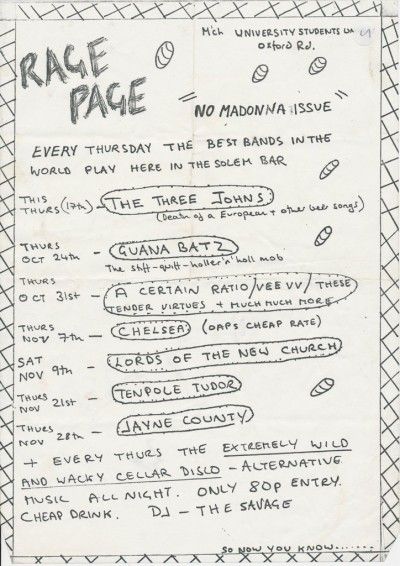 M'ch UNIVERSITY STUDENTS UN
Oxford Rd.
RAGE
PAGE
"NO MADONNA ISSUE"
EVERY THURSDAY THE BEST BANDS IN THE
WORLD PLAY HERE IN THE SOLEM BAR
THIS THURS (17th) - THE THREE JOHNS
(Death of a European + other beer songs)
THURS OCT 24th - GUANA BATZ
The stiff-quiff-holler'n'holl mob
THURS OCT 31st - A CERTAIN RATIO/VEE VV/ THESE
TENDER VIRTUES + MUCH MUCH MORE
THURS NOV 7th - CHELSEA (OAPS CHEAP RATE)
SAT NOV 9th - LORDS OF THE NEW CHURCH
THURS NOV 21st - TENPOLE TUDOR
THURS NOV 28th - JAYNE COUNTY
+ EVERY THURS THE EXTREMELY WILD
AND WACKY CELLAR DISCO - ALTERNATIVE
MUSIC ALL NIGHT. ONLY 80p ENTRY.
CHEAP DRINK. DJ - THE SAVAGE
SO NOW YOU KNOW.......